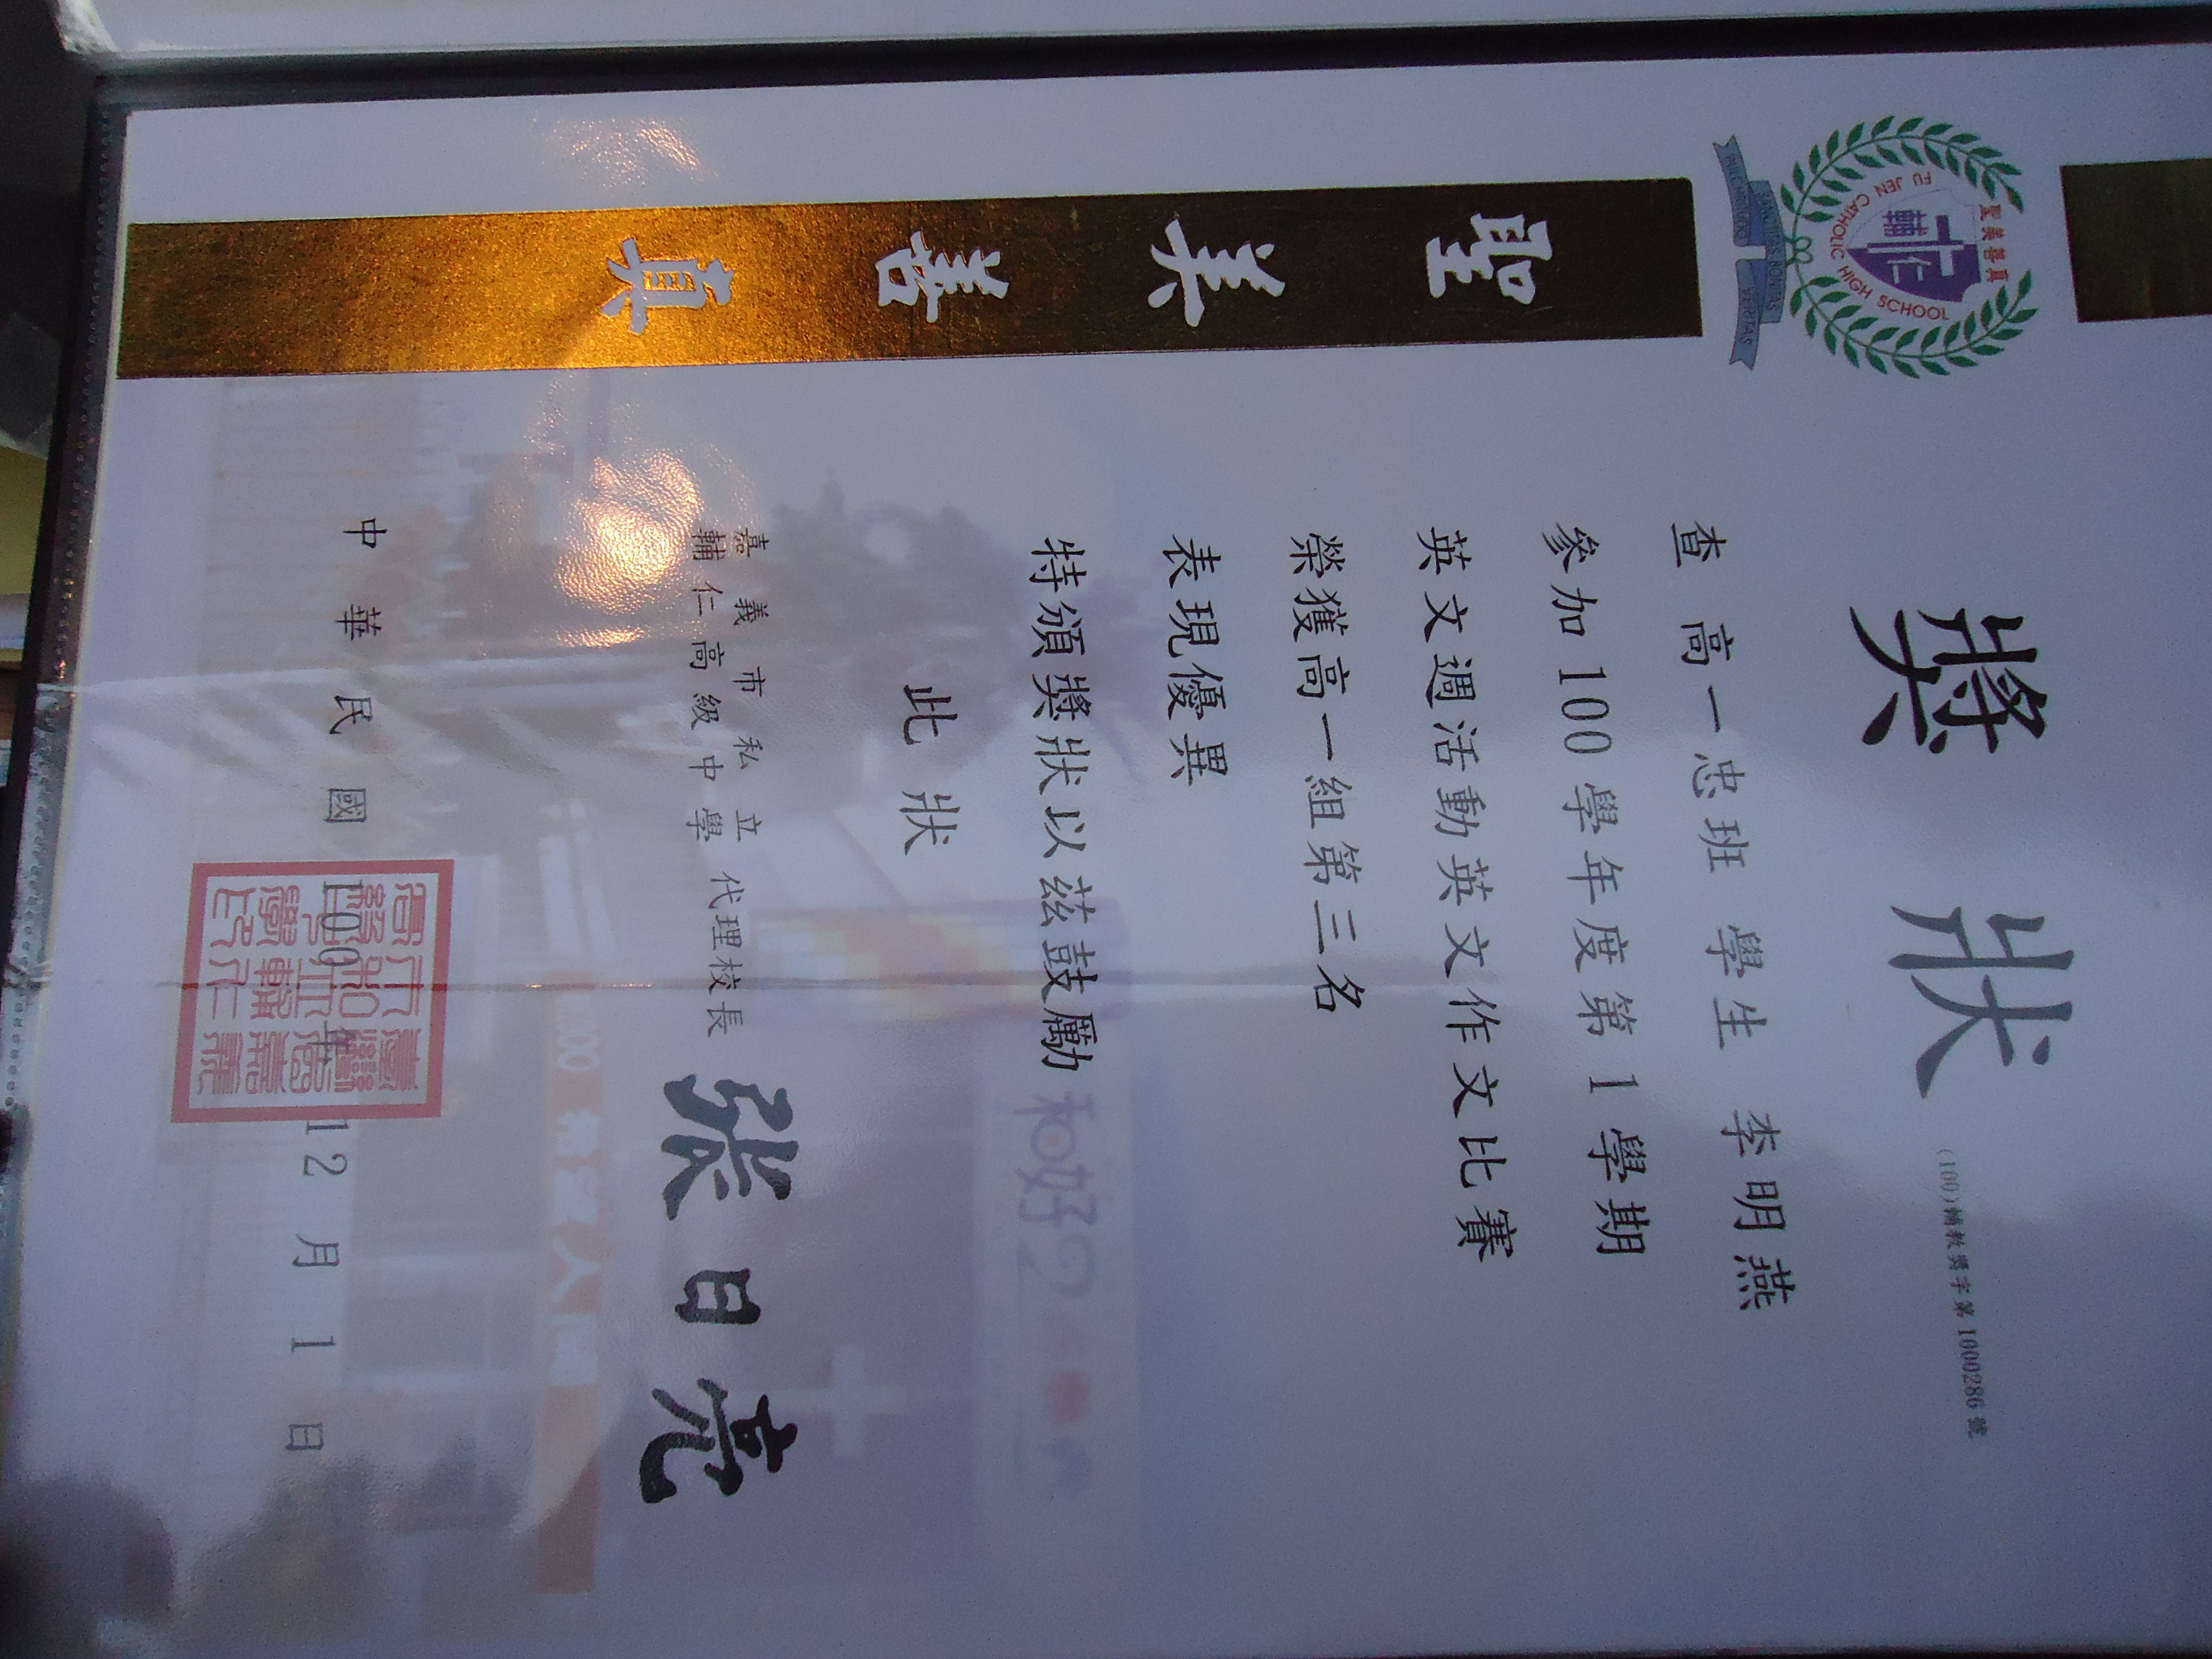 聖美善真
FU JEN CATHOLIC HIGH SCHOOL
輔仁
PULCHRITUDO SANCTITAS BONITAS VERITAS
聖
美
善
真
獎狀
(100)輔教獎字第1000286號
查 高一忠班 學生 李明燕
參加100學年度第1學期
英文週活動英文作文比賽
榮獲高一組第三名
表現優異
特頒獎狀以茲鼓勵
此狀
嘉義市私立
輔仁高級中學
代理校長
張日亮
中華民國100年12月1日
和好